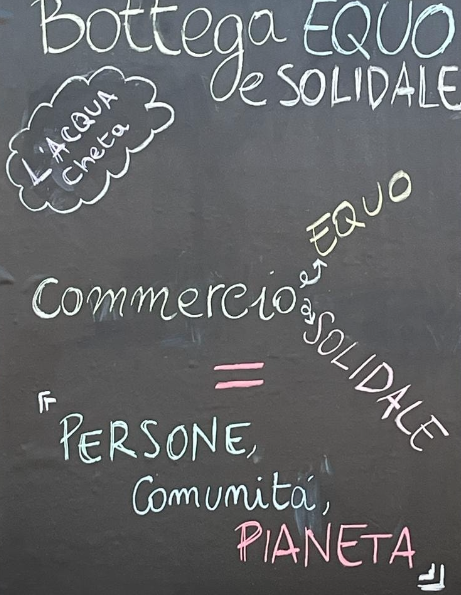 Bottega EQUO
e SOLIDALE
L'ACQUA
cheta
Commercio
e EQUO
e SOLIDALE
=
"PERSONE,
Comunitá,
PIANETA"